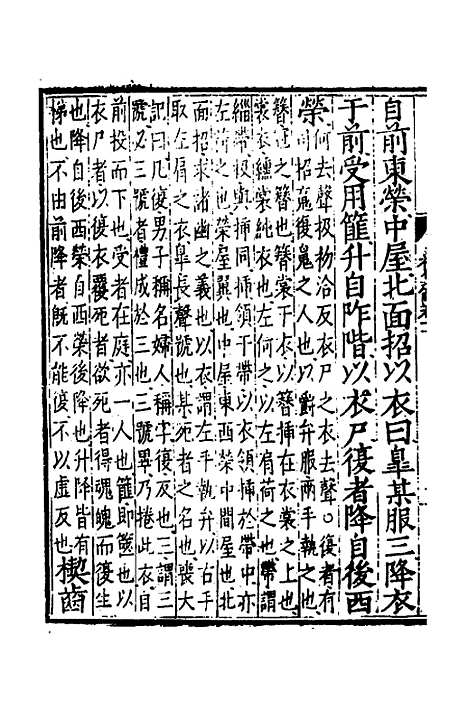 自前東榮中屋北面招以衣曰臯某服三降衣
于前受用篚升自阼階以衣尸復者降自後西
榮何去聲扱初洽反衣尸之衣去聲○復者有
司招䰟復魄之人也以爵弁服兩手執之也
簪冠之簪也簪裳于衣以簪插在衣裳之上也
裳衣纁裳純衣也左何之以左肩荷之也帶謂
緇帶扱與插同插領于帶以衣領插於帶中亦
左荷之也榮屋翼也中屋東西榮中間屋也北
面招求諸幽之義也以衣謂左手執弁以右手
取左肩之衣也臯長聲號也某死者之名也喪大
記曰凡復男子稱名婦人稱字復反也三謂三
號又三號者禮成於三也三號畢乃捲此衣自
前投而下也受者在庭亦一人也篚即篋也以
衣尸者以復衣覆死者欲死者得魂魄而復生
也降自後西榮自西榮後降也升降皆有
梯也不由前降者旣不能復不以虛反也楔齒